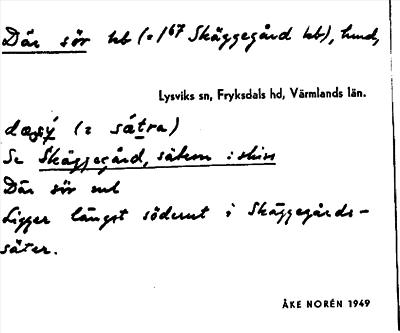 Där sör hb (= 1⁶⁷ Skäggegård hb), hmd,
Lysviks sn, Fryksdals hd, Värmlands län.
(= sätra)
Se Skäggegård, säkern :
Där sör
Ligger längst söderut i Skäggegårds-
säter.
ÅKE NORÉN 1949